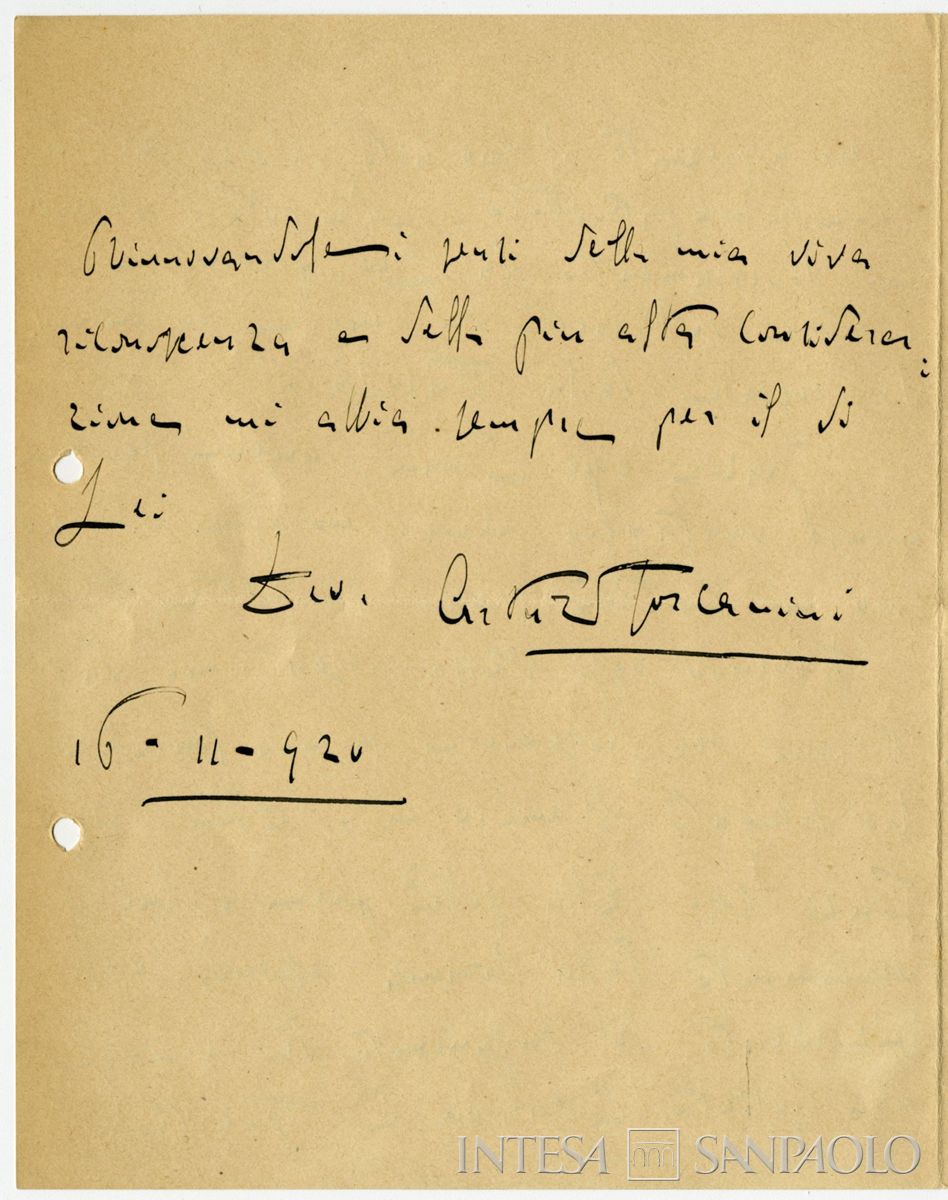 Rinnovandole i sensi della mia viva
riconoscenza e della più alta considera-
zione mi abbia sempre per il di
Lei
Dev. Arturo Toscanini
16-11-920
INTESA SANPAOLO